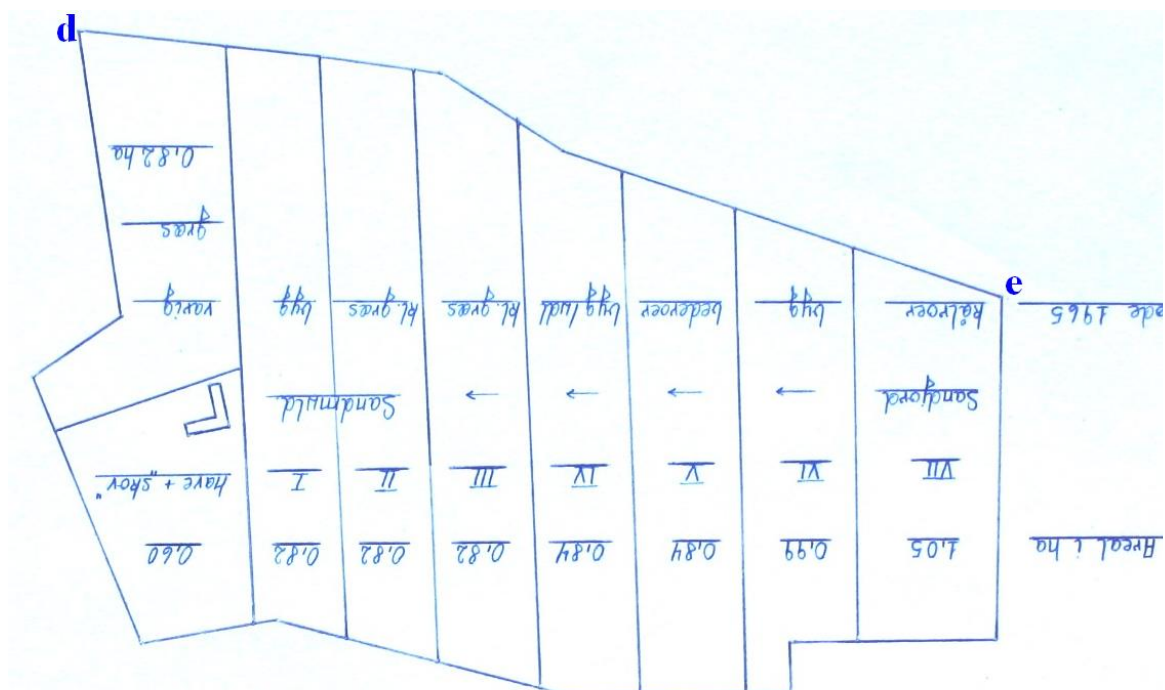 Areal i ha
1,05
0,99
0,84
0,84
0,82
0,82
0,82
0,60
VII
VI
V
IV
III
II
I
Have + skov"
Sandjord
Sandmuld
øde 1965
kålroer
byg
bederoer
byg/udl
kl. græs
kl. græs
byg
varig
græs
0,82 ha
e
d